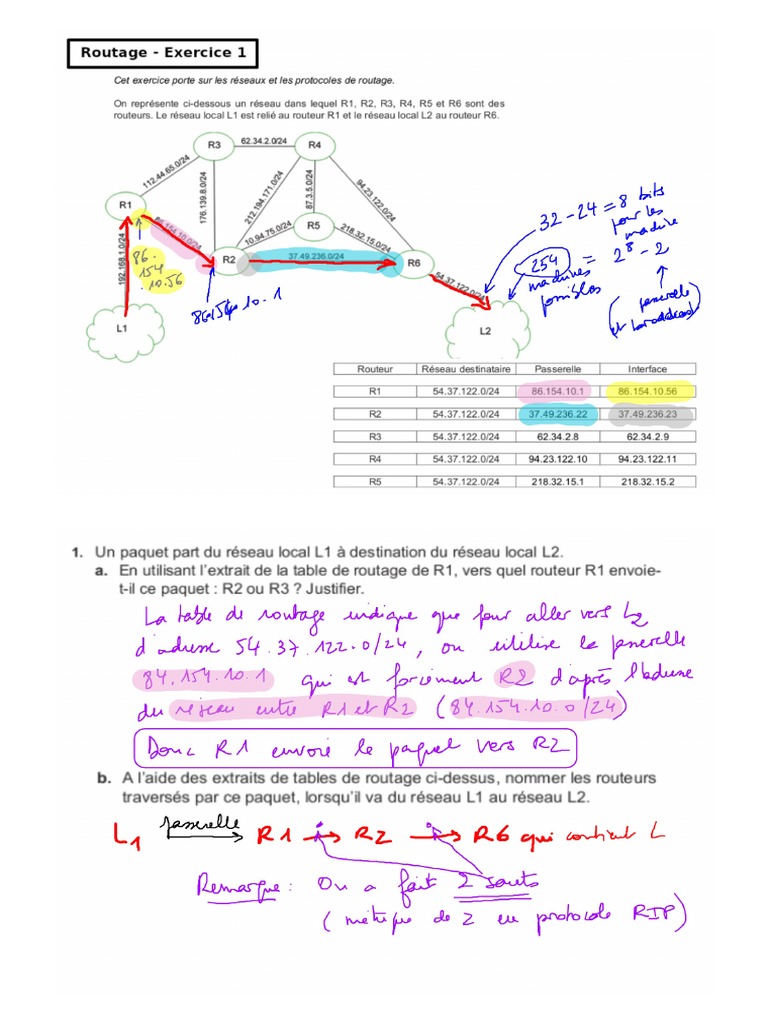 Routage - Exercice 1
Cet exercice porte sur les réseaux et les protocoles de routage.
On représente ci-dessous un réseau dans lequel R1, R2, R3, R4, R5 et R6 sont des
routeurs. Le réseau local L1 est relié au routeur R1 et le réseau local L2 au routeur R6.
R3
62.34.2.0/24
R4
112.44.65.0/24
176.139.8.0/24
212.194.171.0/24
87.3.5.0/24
94.23.122.0/24
R1
86.154.10.0/24
R5
10.94.75.0/24
218.32.15.0/24
R2
37.49.236.0/24
R6
192.168.1.0/24
54.37.122.0/24
L1
L2
86.
154
.
10.56
86.154.10.1
32-24 = 8 bits
pour les
machine
254 = 2^8 - 2
machines
possibles
(passerelle
et broadcast)
Routeur Réseau destinataire Passerelle Interface
R1 54.37.122.0/24 86.154.10.1 86.154.10.56
R2 54.37.122.0/24 37.49.236.22 37.49.236.23
R3 54.37.122.0/24 62.34.2.8 62.34.2.9
R4 54.37.122.0/24 94.23.122.10 94.23.122.11
R5 54.37.122.0/24 218.32.15.1 218.32.15.2
1. Un paquet part du réseau local L1 à destination du réseau local L2.
a. En utilisant l'extrait de la table de routage de R1, vers quel routeur R1 envoie-
t-il ce paquet : R2 ou R3 ? Justifier.
La table de routage indique que pour aller vers L2
d'adresse 54.37.122.0/24, on utilise la passerelle
84.154.10.1 qui est forcément R2 d'après l'adresse
du réseau entre R1 et R2 (84.154.10.0/24)
Donc R1 envoie le paquet vers R2
b. A l'aide des extraits de tables de routage ci-dessus, nommer les routeurs
traversés par ce paquet, lorsqu'il va du réseau L1 au réseau L2.
L1 passerelle → R1 → R2 → R6 qui contient L
Remarque : On a fait 2 sauts
(métrique de 2 en protocole RIP)